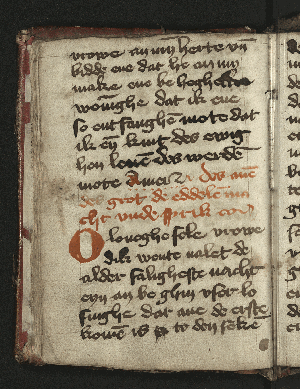 vrowe an myn herte vn
bidde ene dat he an my
make ene be heghelke
woninghe dat ik ene
so entfanghe mote dat
ik eyn kint des ewig
hen leuendes werde
mote Amen des auen
des grot de eddelen nu
cht vnde sprik
O loueghe sele vrowe
dik wente nalet de
alder saligheste nacht
eyn an be ghin vser lo
singhe dar ane de erste
komen is to den seke